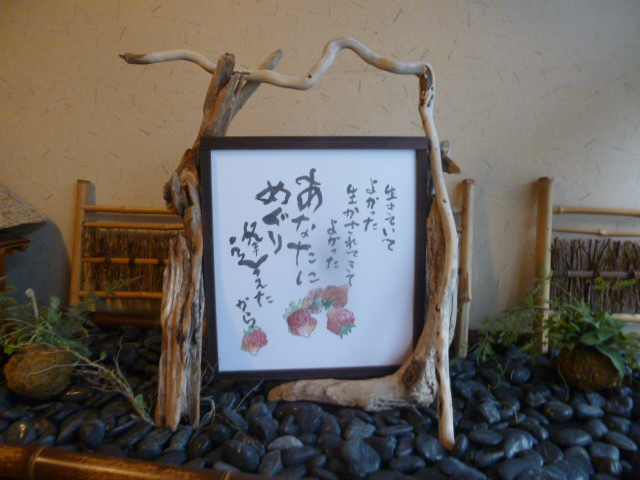 生きていて
よかった
生かされてきて
よかった
あなたに
めぐり
逢えた
から